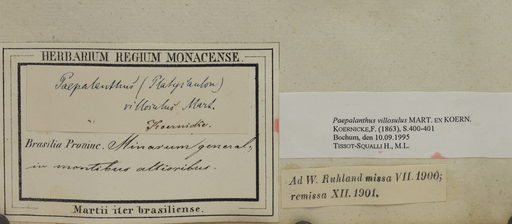 HERBARIUM REGIUM MONACENSE.
Paepalanthus (Platycaulon)
villosulus Mart.
Koernicke.
Brasilia Provinc. Minarum general,
in montibus altioribus.
Martii iter brasiliense.
Paepalanthus villosulus MART. EX KOERN.
KOERNICKE,F. (1863), S.400-401
Bochum, den 10.09.1995
TISSOT-SQUALLI H., M.L.
Ad W. Ruhland missa VII. 1900;
remissa XII. 1901.